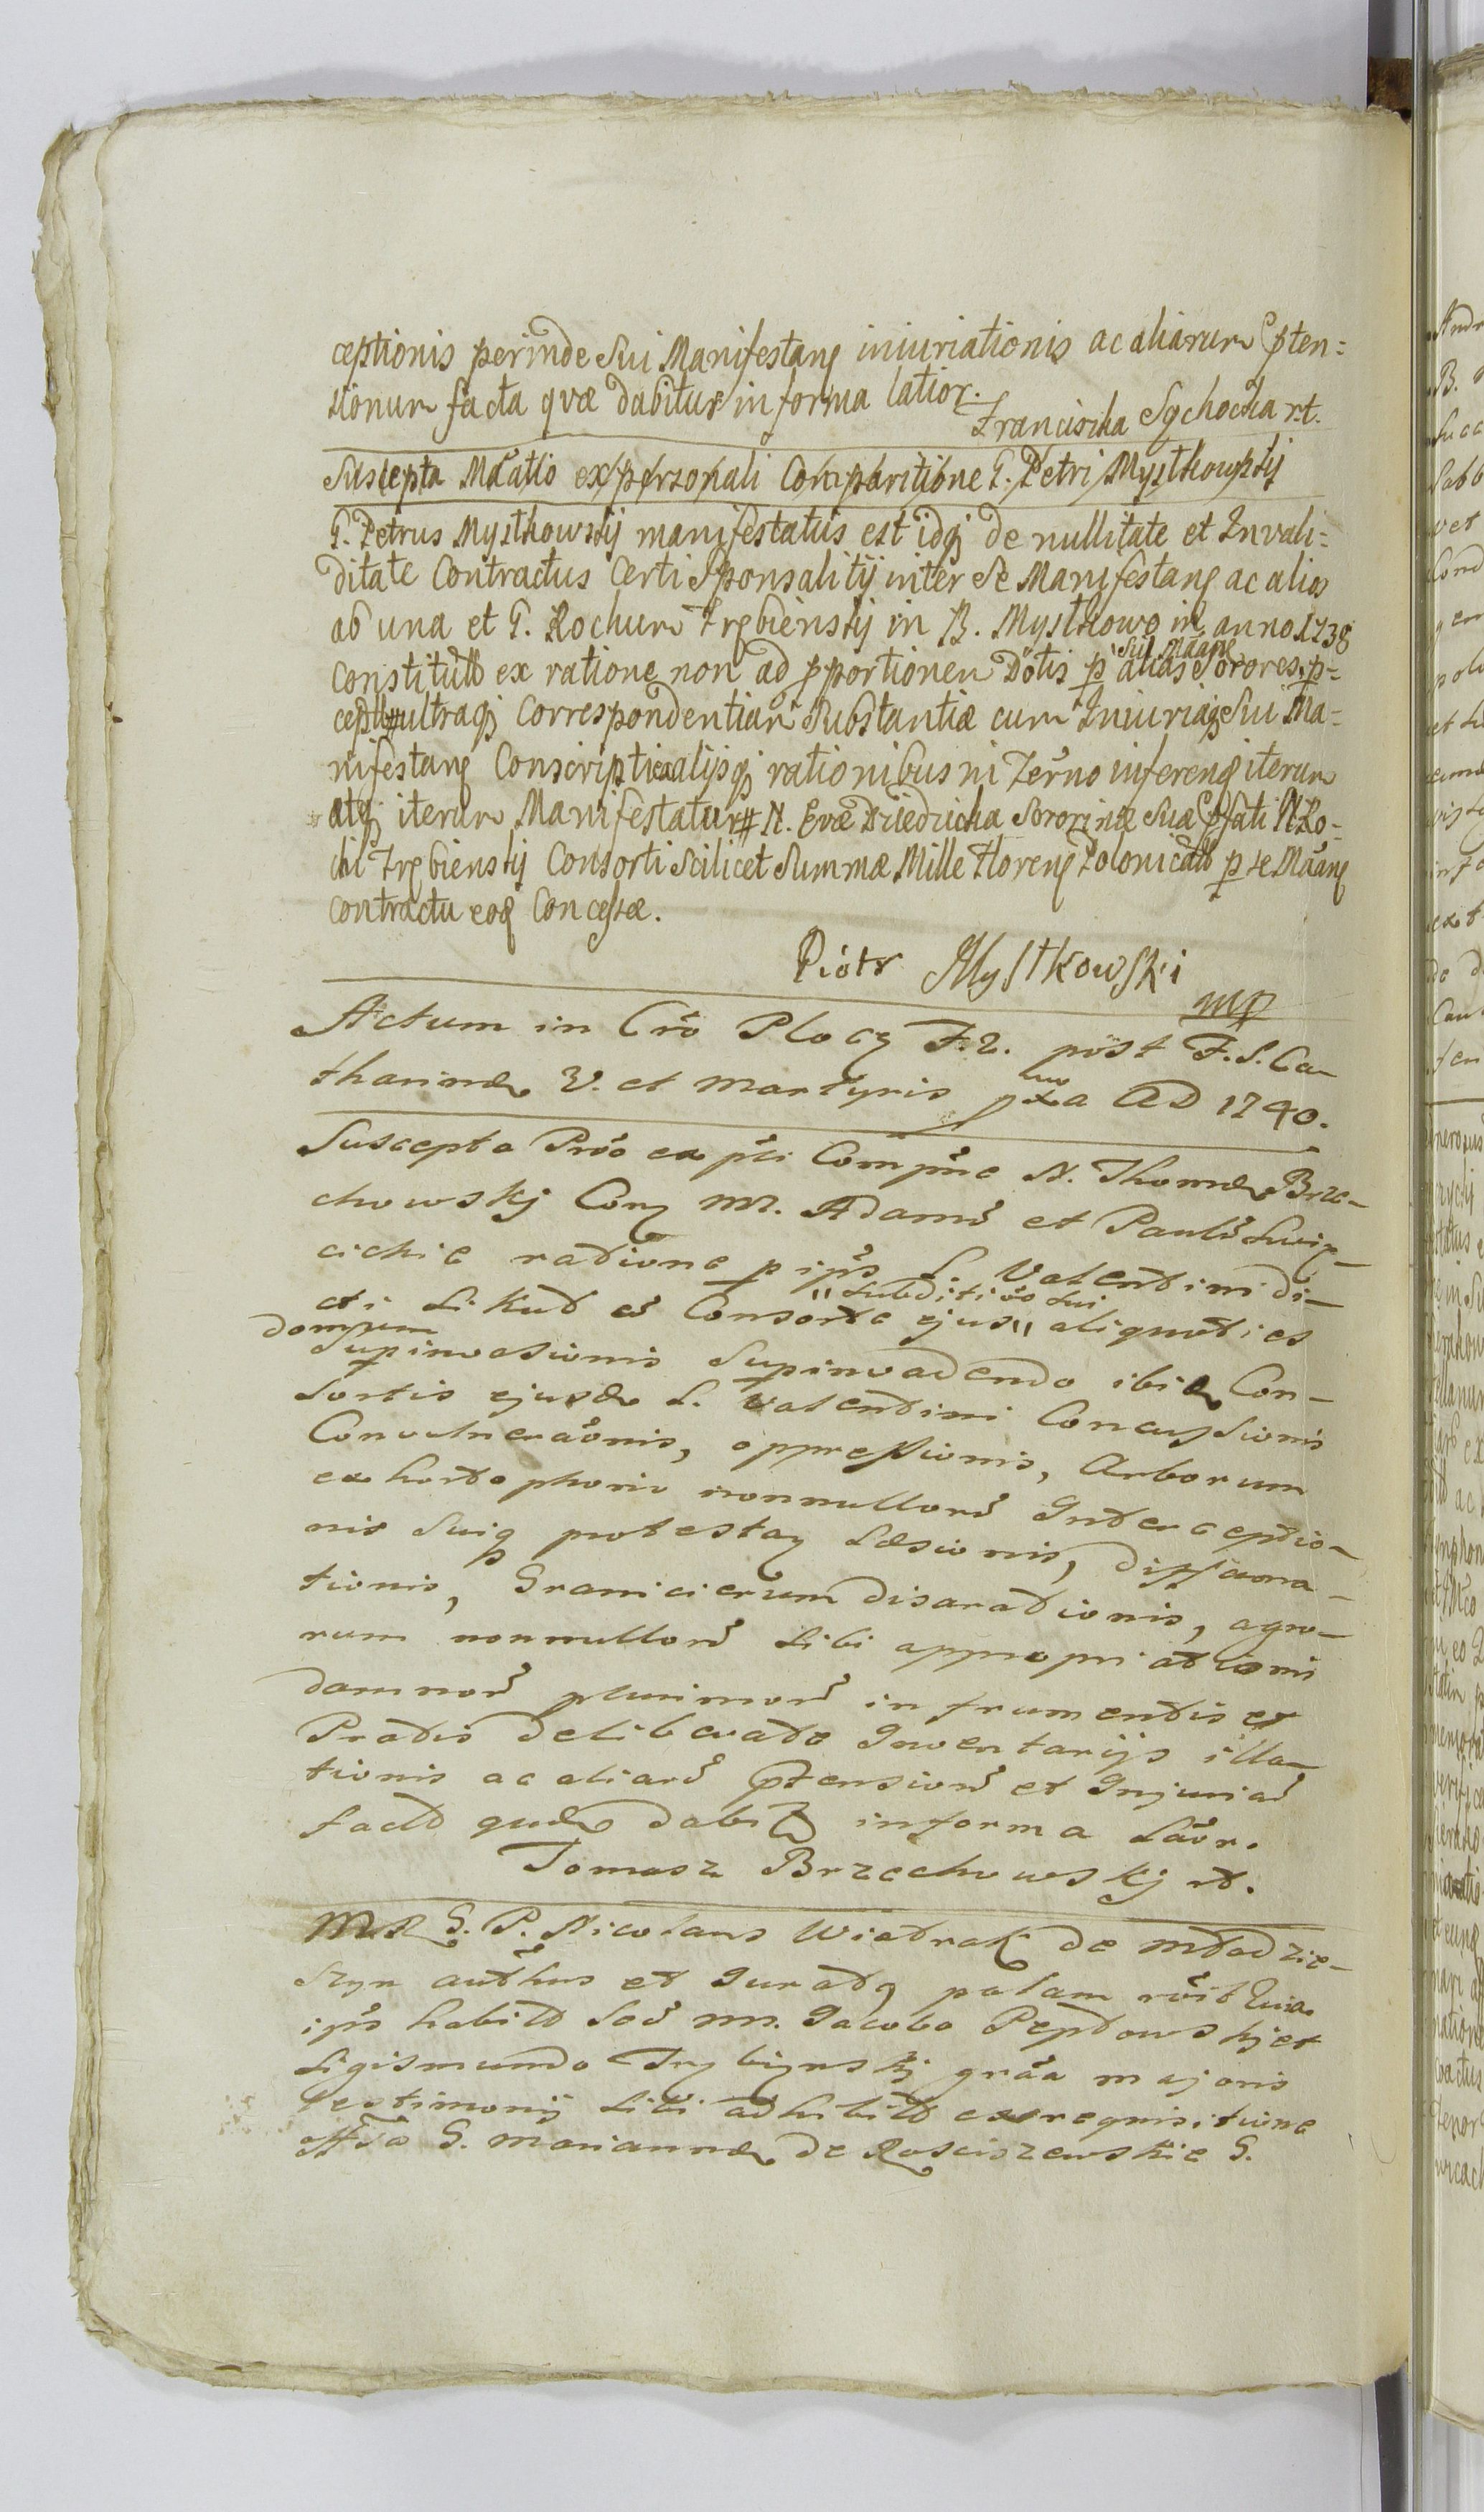 ceptionis perinde sui Manifestanˢ iniuriationis ac aliarum ꝑten=
sionum facta qvæ dabitur in forma latior.
Franciszka Sychocka r.t.
Suscepta Mãatio ex personali Comparitione G. Petri Mystkowskij
G. Petrus Mystkowskij manifestatus est idq; de nullitate et Invali=
ditate Contractus Certi Sponsalitij inter se Manifestanˢ ac alios
ab una et G. Rochum Trębienskij in B. Mystkowo in anno 1738
sui Mãanˢ
Constituto ex ratione non ad ꝓportionem Dotis ꝑ alias Sorores ꝑ=
ceptæ ultraq; Correspondentiam Substantiæ cum Iniuriaq; sui Ma=
nifestanˢ Conscripti alijsq; rationibus in Termo inferenˢ iterum
atq; iterum Manifestatur # N. Evæ Driedzicka Sororinæ suæ ꝑfati N Ro=
chi Trębienskij Consorti scilicet Summæ Mille Florenˢ Polonicalˢ ꝑ se Mãanˢ
contractu eoq; Concessæ.
Piotr Mystkowski
mp
Actum in Cro Plocˢ F. 2. post F. S. Ca-
tharinæ V. et Martyris pxa AD 1740.
Suscepta Prõo ex pli Compne N. Thomæ Brze-
chowskj Conˢ MN. Adamũ et Paulũ
cichie ratione ꝑ ipš L. Valentini di-
subditivõ sui
cti Likut et Consorte ejus aliquoties
domum
Supinvasionis Supinvadendo ibiq; Con-
sortis ejusdæ L. Valentini Concussionis
Convulneraõnis, oppressionis, Arborum
ex horto nonnullorũ Interceptio-
nis suiq; protestanˢ Læsionis, diffama-
tionis, Granicierum disarationis, agro-
rum nonnullorũ sibi appropriationis
damnorũ plurimorũ in frumentis et
Pratis deliberate Inventarijs illa-
tionis ac aliarũ ꝑtensionũ et Injuriaũ
facta quæ dabit in forma Laõr.
Tomasz Brzechowskj rt.
Mnˢ G. P. Nicolaus Wiatrak de Młodzie-
szyn authus et Juratˢ palam rõit Quia
ipš habitˢ Sociˢ nn. Jacobo Peptowskj et
Sigismundo Trębiynskj grãa majoris
testimonij sibi adhibitˢ ex requisitione
offsa G. Mariannæ de Rosciszewskie G.